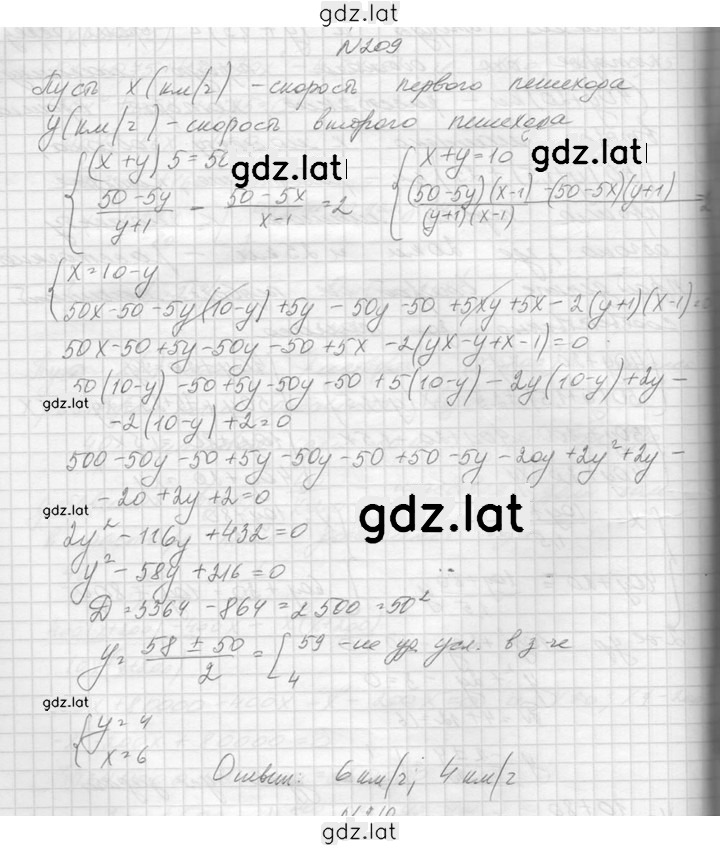 gdz.lat
N209
Пусть x (км/ч) - скорость первого пешехода
y (км/ч) - скорость второго пешехода
{ (x + y) 5 = 50 { x + y = 10
gdz.lat gdz.lat
(50 - 5y)/(y+1) - (50 - 5x)/(x-1) = 2 ((50-5y)(x-1) - (50-5x)(y+1))/((y+1)(x-1)) = 2
{ x = 10 - y
50x - 50 - 5y(10-y) + 5y - 50y - 50 + 5xy + 5x - 2(y+1)(x-1) =
50x - 50 + 5y - 50y - 50 + 5x - 2(yx - y + x - 1) = 0
50(10-y) - 50 + 5y - 50y - 50 + 5(10-y) - 2y(10-y) + 2y -
gdz.lat
- 2(10-y) + 2 = 0
500 - 50y - 50 + 5y - 50y - 50 + 50 - 5y - 20y + 2y² + 2y -
gdz.lat
- 20 + 2y + 2 = 0
gdz.lat
2y² - 116y + 432 = 0
y² - 58y + 216 = 0
D = 3364 - 864 = 2500 = 50²
y = (58 ± 50)/2 = [ 59 - не уд. усл. в з-че
4
gdz.lat
{ y = 4
x = 6
Ответ: 6 км/ч; 4 км/ч
N210
gdz.lat